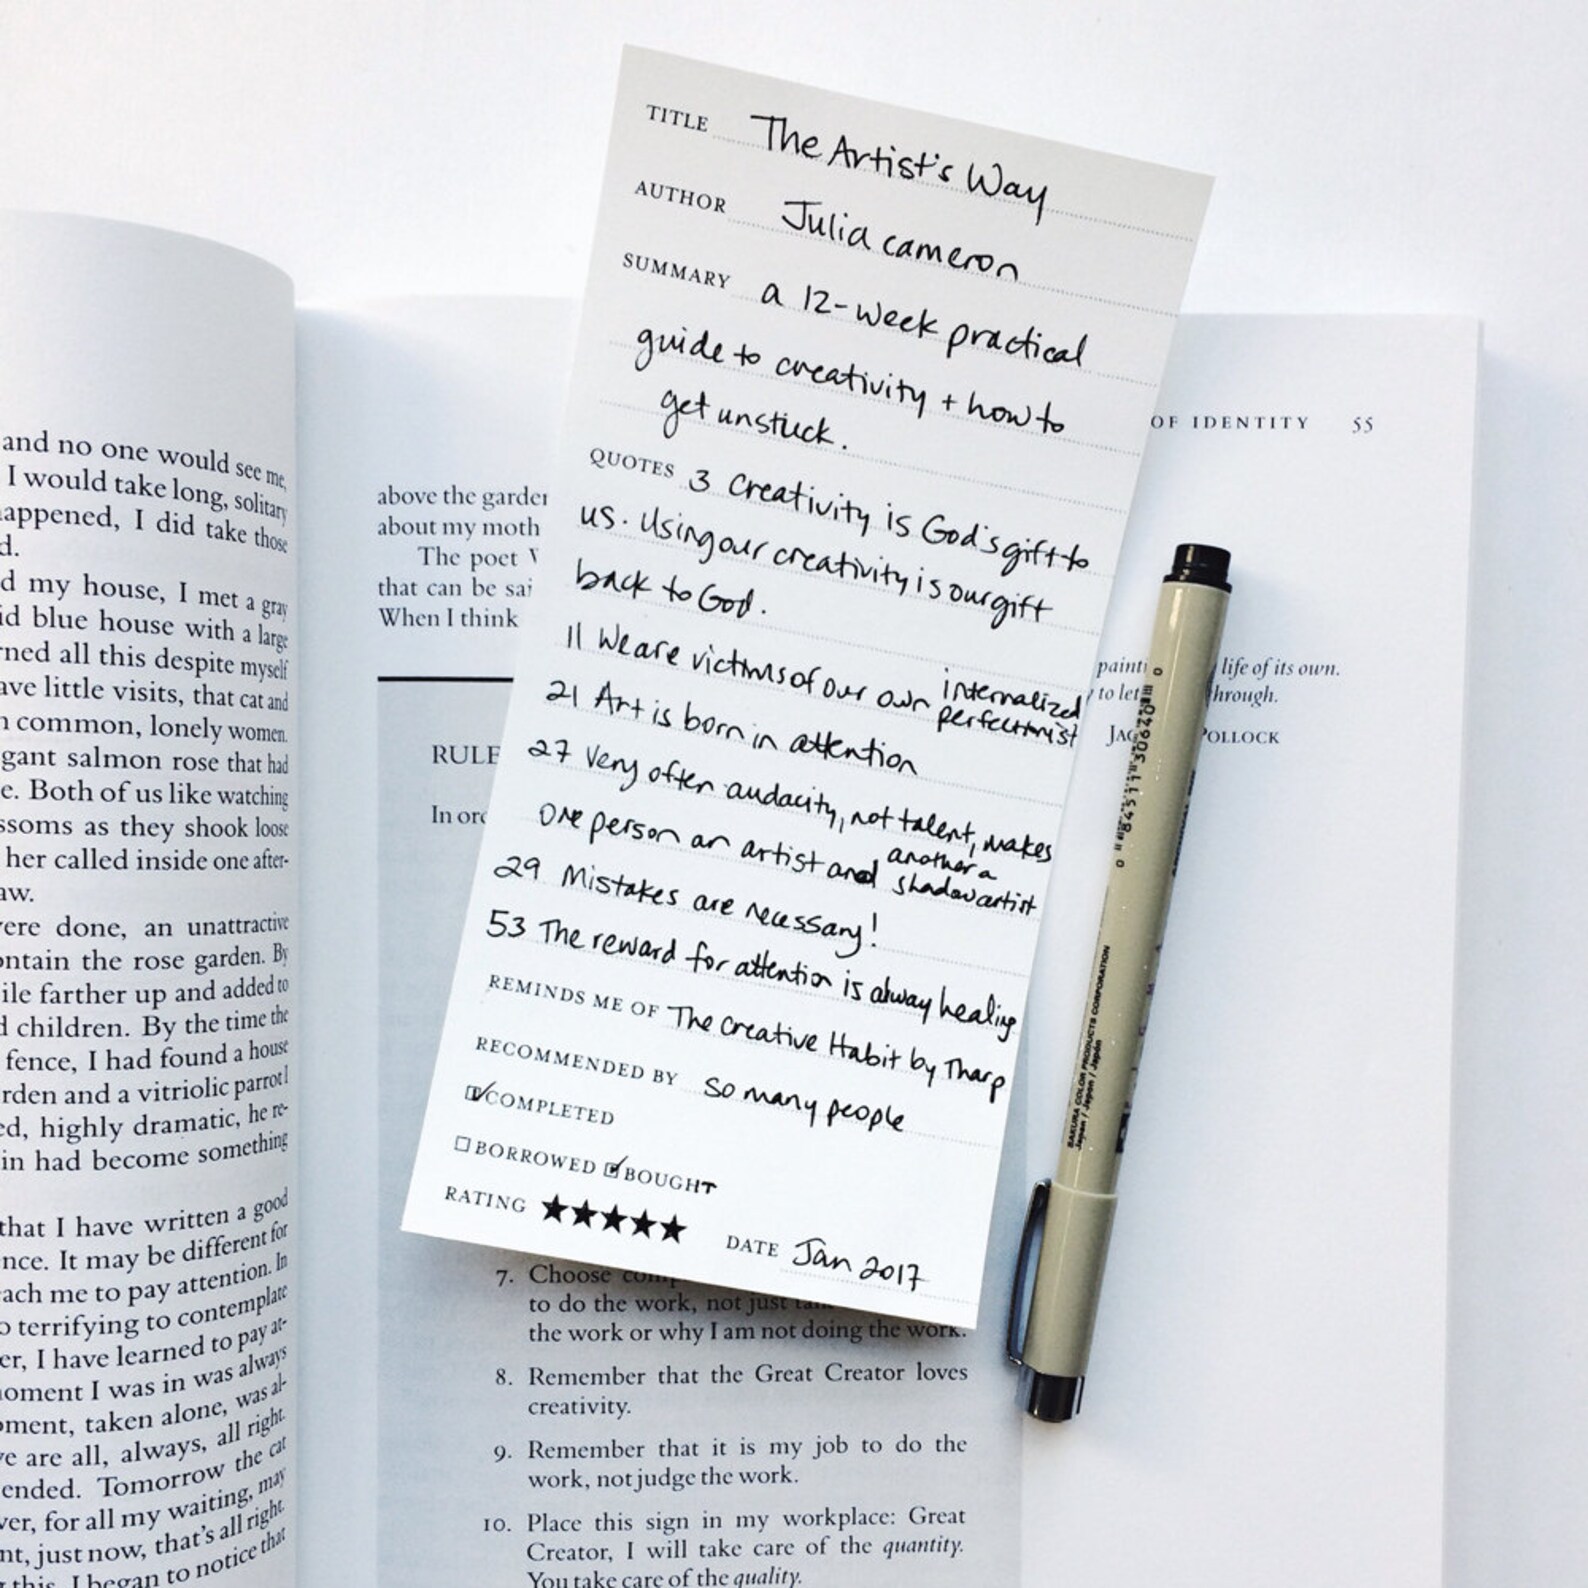 and no one would see me,
I would take long, solitary
appened, I did take those
d.
d my house, I met a gray
id blue house with a large
rned all this despite myself
ave little visits, that cat and
n common, lonely women.
gant salmon rose that had
e. Both of us like watching
ssoms as they shook loose
her called inside one after-
aw.
ere done, an unattractive
ontain the rose garden. By
ile farther up and added to
d children. By the time the
fence, I had found a house
rden and a vitriolic parrot I
ed, highly dramatic, he re-
in had become something
that I have written a good
nce. It may be different for
each me to pay attention. In
o terrifying to contemplate
er, I have learned to pay at-
moment I was in was always
oment, taken alone, was al-
ve are all, always, all right.
ended. Tomorrow the cat
ver, for all my waiting, may
nt, just now, that's all right.
this, I began to notice that
TITLE The Artist's Way
AUTHOR Julia cameron
SUMMARY a 12-week practical
guide to creativity + how to
get unstuck.
QUOTES 3 Creativity is God's gift to
us. Using our creativity is our gift
back to God.
11 We are victims of our own internalized
perfectionist
21 Art is born in attention
27 Very often audacity, not talent, makes
one person an artist and another a
shadow artist
29 Mistakes are necessary!
53 The reward for attention is alway healing
REMINDS ME OF The Creative Habit by Tharp
RECOMMENDED BY so many people
COMPLETED
BORROWED BOUGHT
RATING ★★★★★
DATE Jan 2017
OF IDENTITY 55
above the garden
about my moth
The poet W
that can be sai
When I think
painti life of its own.
to let through.
JAC POLLOCK
RULE
In orc
7. Choose com
to do the work, not just
the work or why I am not doing the work.
8. Remember that the Great Creator loves
creativity.
9. Remember that it is my job to do the
work, not judge the work.
10. Place this sign in my workplace: Great
Creator, I will take care of the quantity.
You take care of the quality.
0 84511 30640 0
SAKURA COLOR PRODUCTS CORPORATION
Japan / Japon / Japón